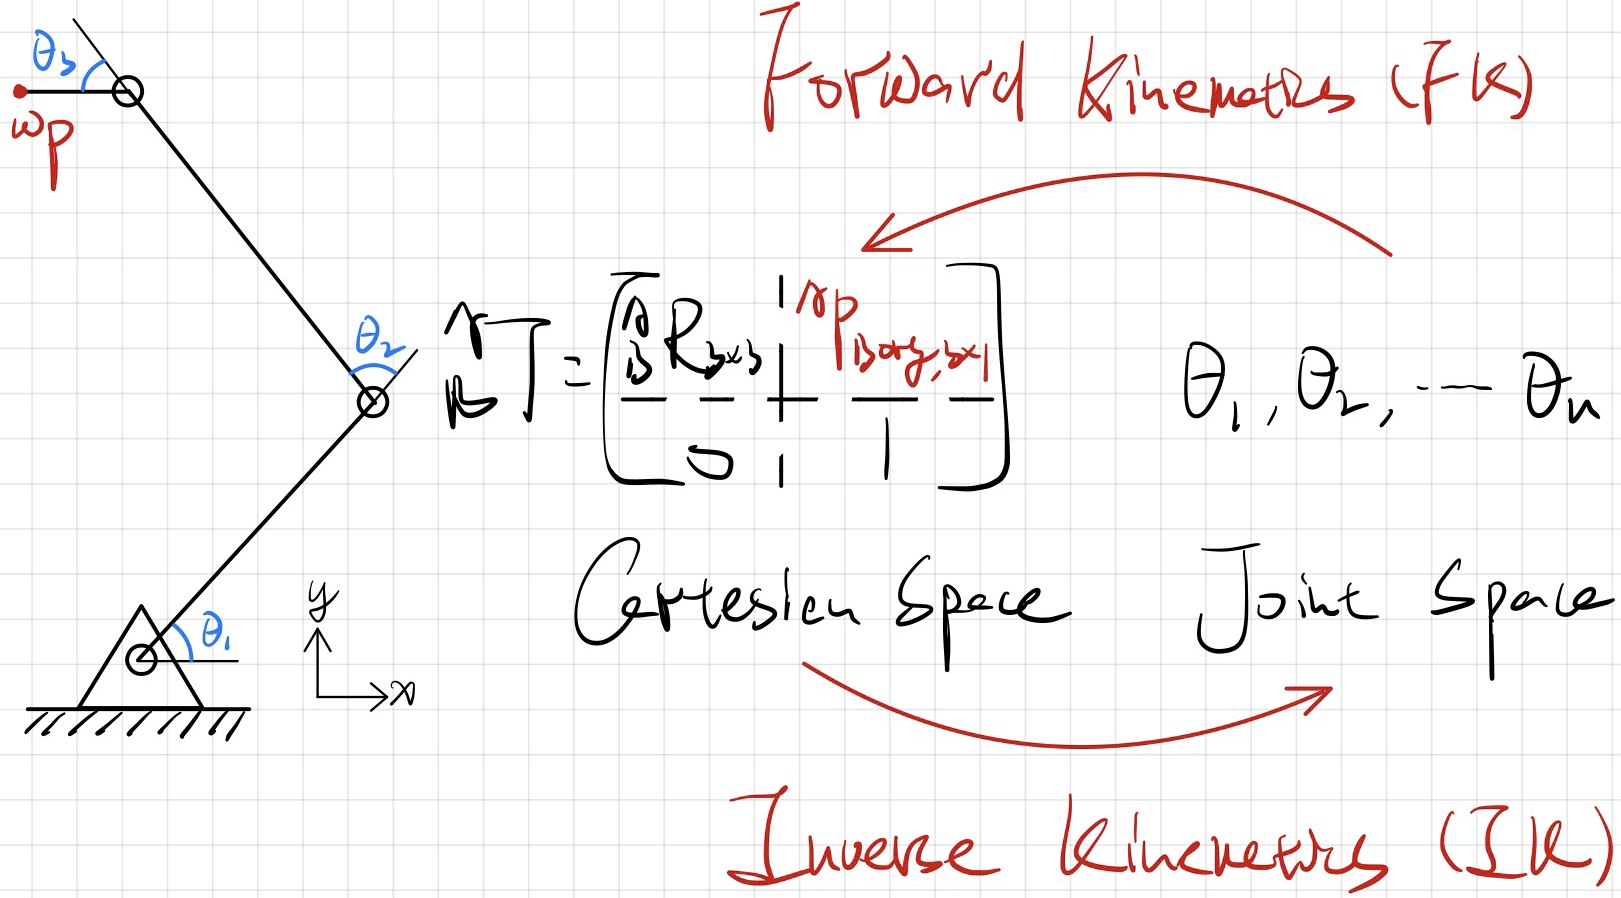 Forward Kinematics (FK)
θ₃
ᵂP
θ₂
ᴬ_BT = [ ᴬ_BR₃ₓ₃ ¦ ᴬP_Borg,₃ₓ₁ ; 0 ¦ 1 ]
θ₁, θ₂, ... θₙ
Cartesian Space
Joint Space
θ₁
y
x
Inverse Kinematics (IK)